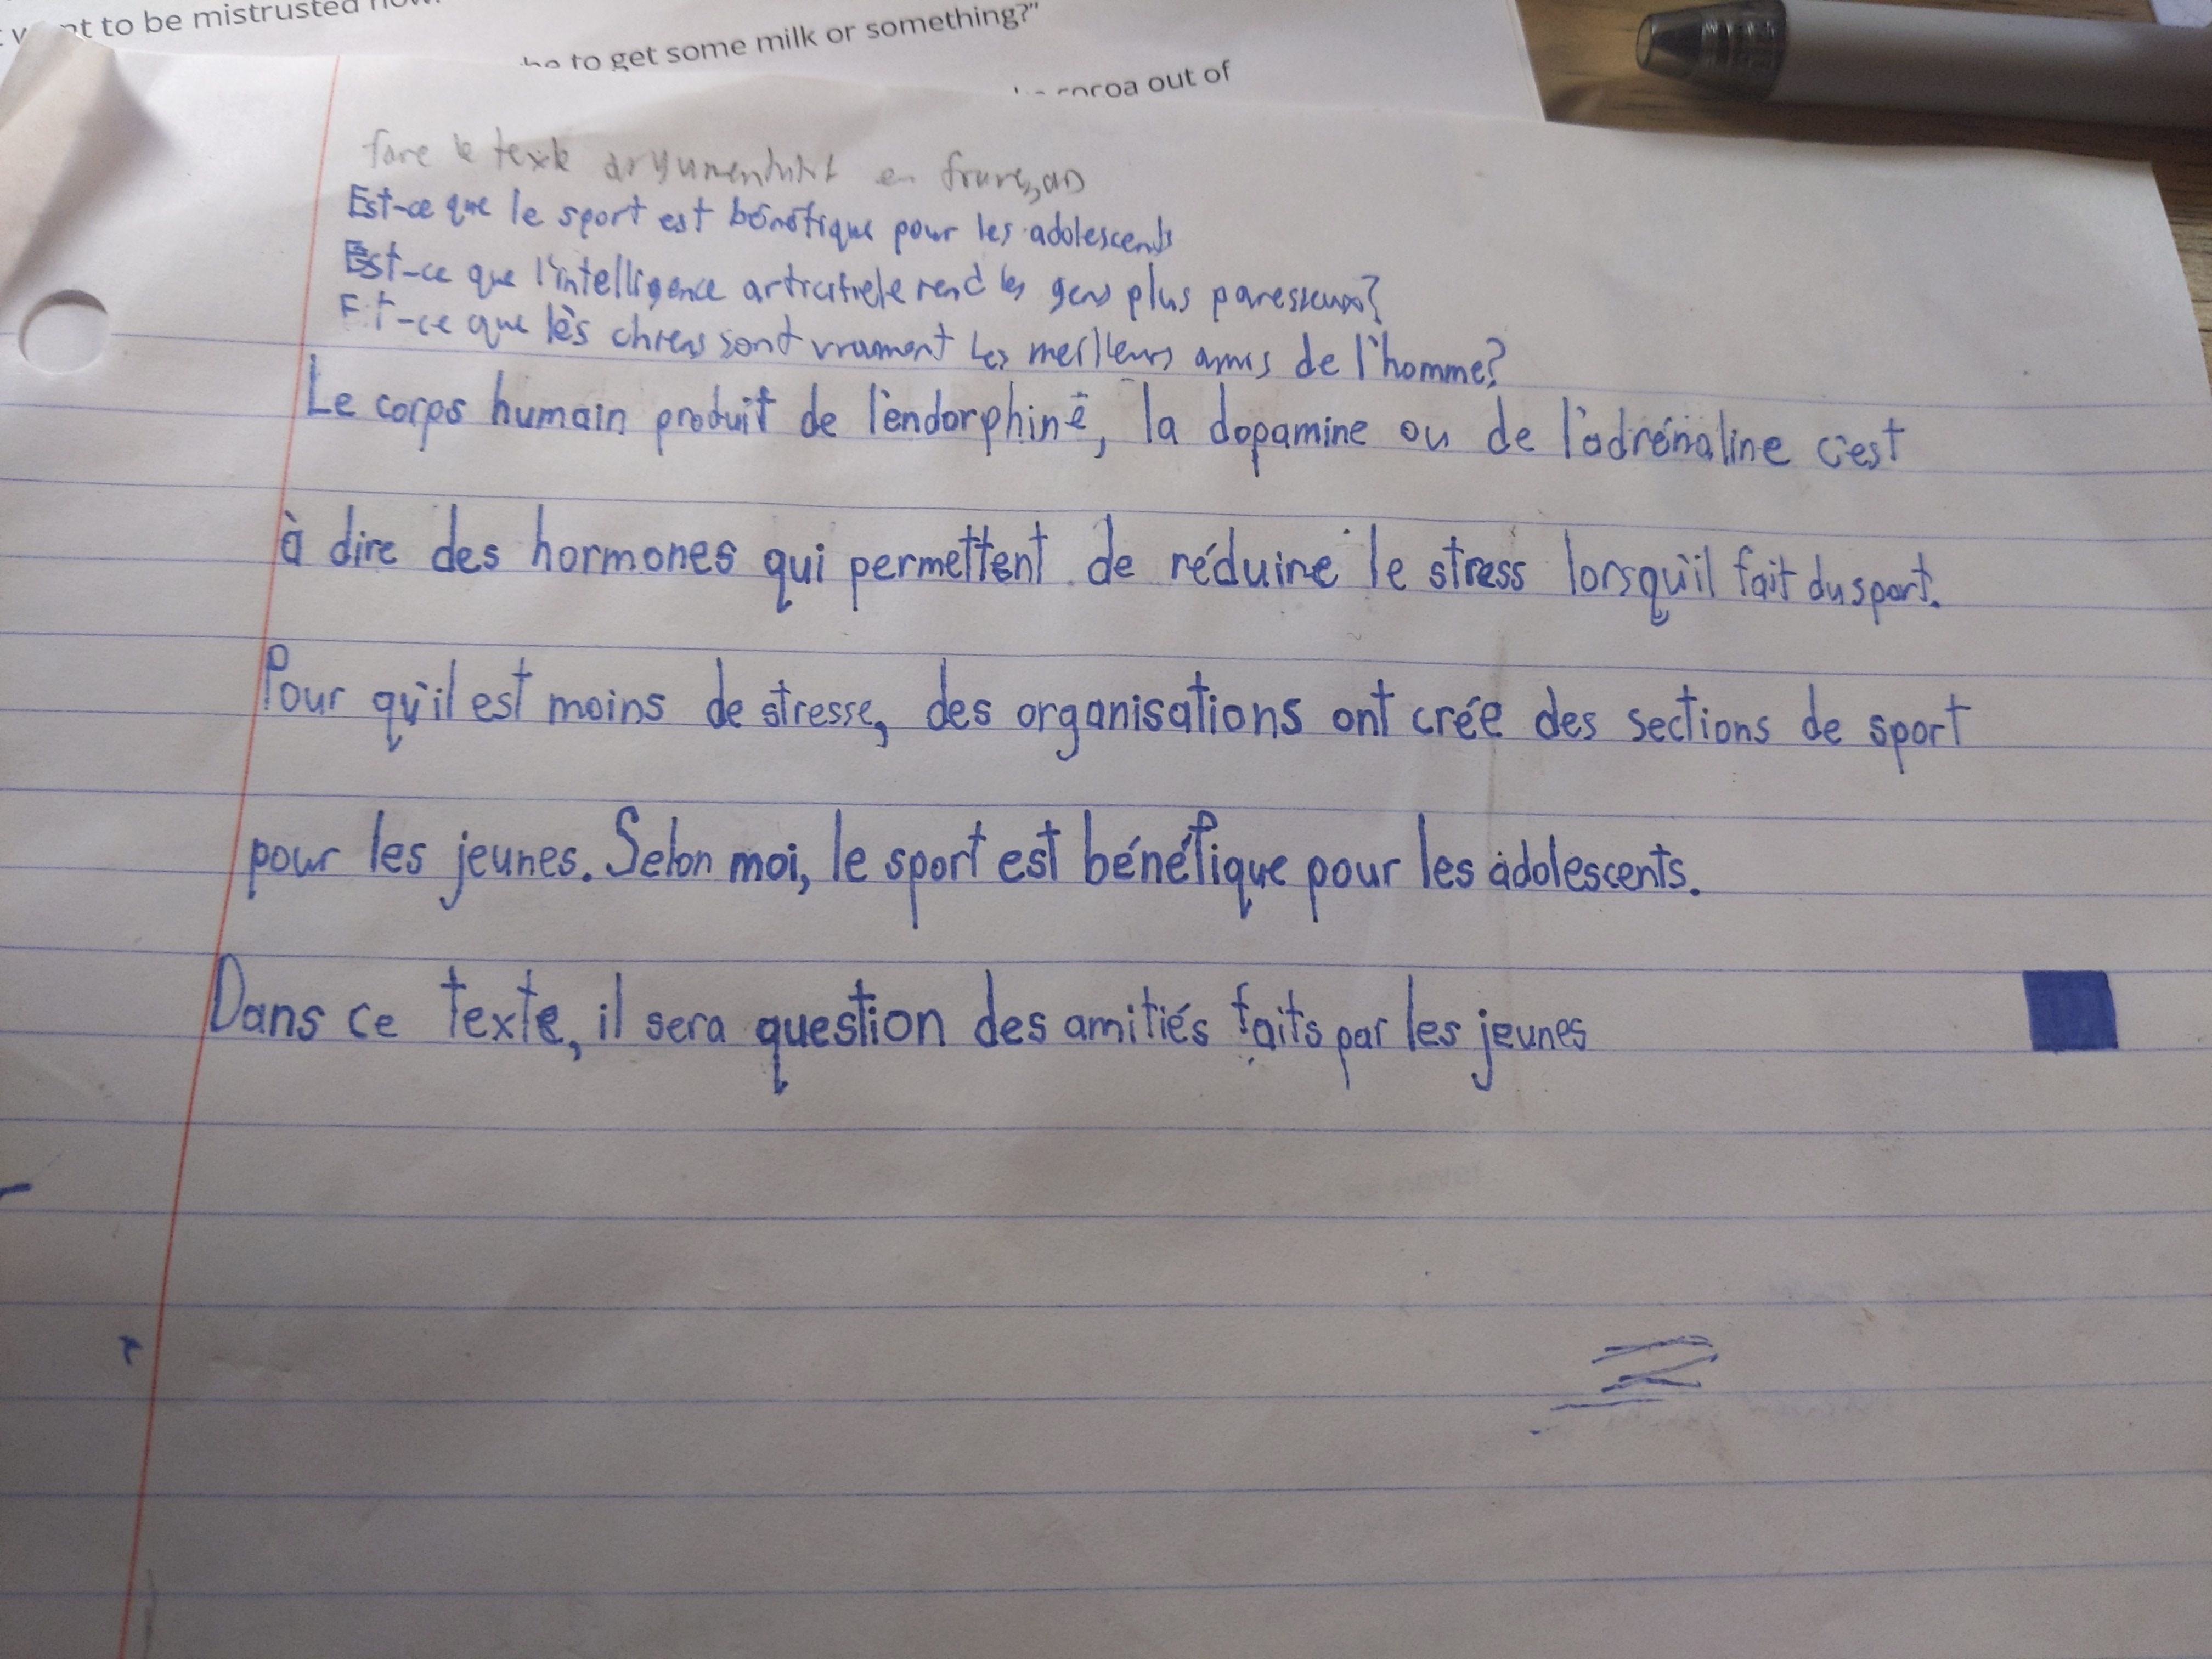 nt to be mistrusted now.
to get some milk or something?"
cocoa out of
fare le texte argumentatif en français
Est-ce que le sport est bénéfique pour les adolescents
Est-ce que l'intelligence articifiele rend les gens plus paresseux?
Est-ce que lès chiens sont vraiment les meilleurs amis de l'homme?
Le corps humain produit de l'endorphine, la dopamine ou de l'adrénaline c'est
à dire des hormones qui permettent de réduire le stress lorsqu'il fait du sport.
Pour qu'il est moins de stresse, des organisations ont crée des sections de sport
pour les jeunes. Selon moi, le sport est bénéfique pour les adolescents.
Dans ce texte, il sera question des amitiés faits par les jeunes